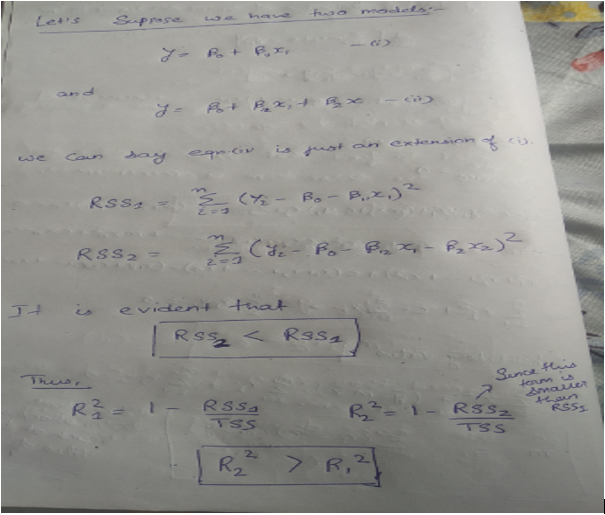 Let's Suppose we have two models:-
y = β₀ + β₁x₁ - (i)
and
y = β₀ + β₁x₁ + β₂x - (ii)
we can say eqn (ii) is just an extension of (i).
RSS₁ = Σᵢ₌₁ⁿ (yᵢ - β₀ - β₁x₁)²
RSS₂ = Σᵢ₌₁ⁿ (yᵢ - β₀ - β₁x₁ - β₂x₂)²
It is evident that
RSS₂ < RSS₁
Thus,
R₁² = 1 - RSS₁/TSS R₂² = 1 - RSS₂/TSS
Since this
term is
smaller
than
RSS₁
R₂² > R₁²